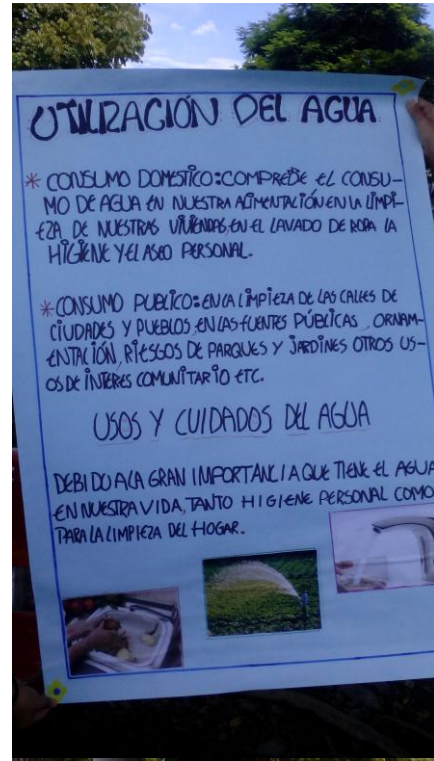 UTILIZACIÓN DEL AGUA
* CONSUMO DOMESTICO: COMPREDE EL CONSU-
MO DE AGUA EN NUESTRA ALIMENTALIÓN EN LA LIMPI-
EZA DE NUESTRAS VIVIENDAS, EN EL LAVADO DE ROPA LA
HIGIENE Y EL ASEO PERSONAL.
* CONSUMO PUBLICO: EN LA LIMPIEZA DE LAS CALLES DE
CIUDADES Y PUEBLOS, EN LAS FUENTES PÚBLICAS, ORNAM-
ENTALIÓN, RIESGOS DE PARQUES Y JARDINES OTROS US-
OS DE INTERES COMUNITARIO ETC.
USOS Y CUIDADOS DEL AGUA
DEBIDO A LA GRAN IMPORTANCIA QUE TIENE EL AGUA
EN NUESTRA VIDA, TANTO HIGIENE PERSONAL COMO
PARA LA LIMPIEZA DEL HOGAR.